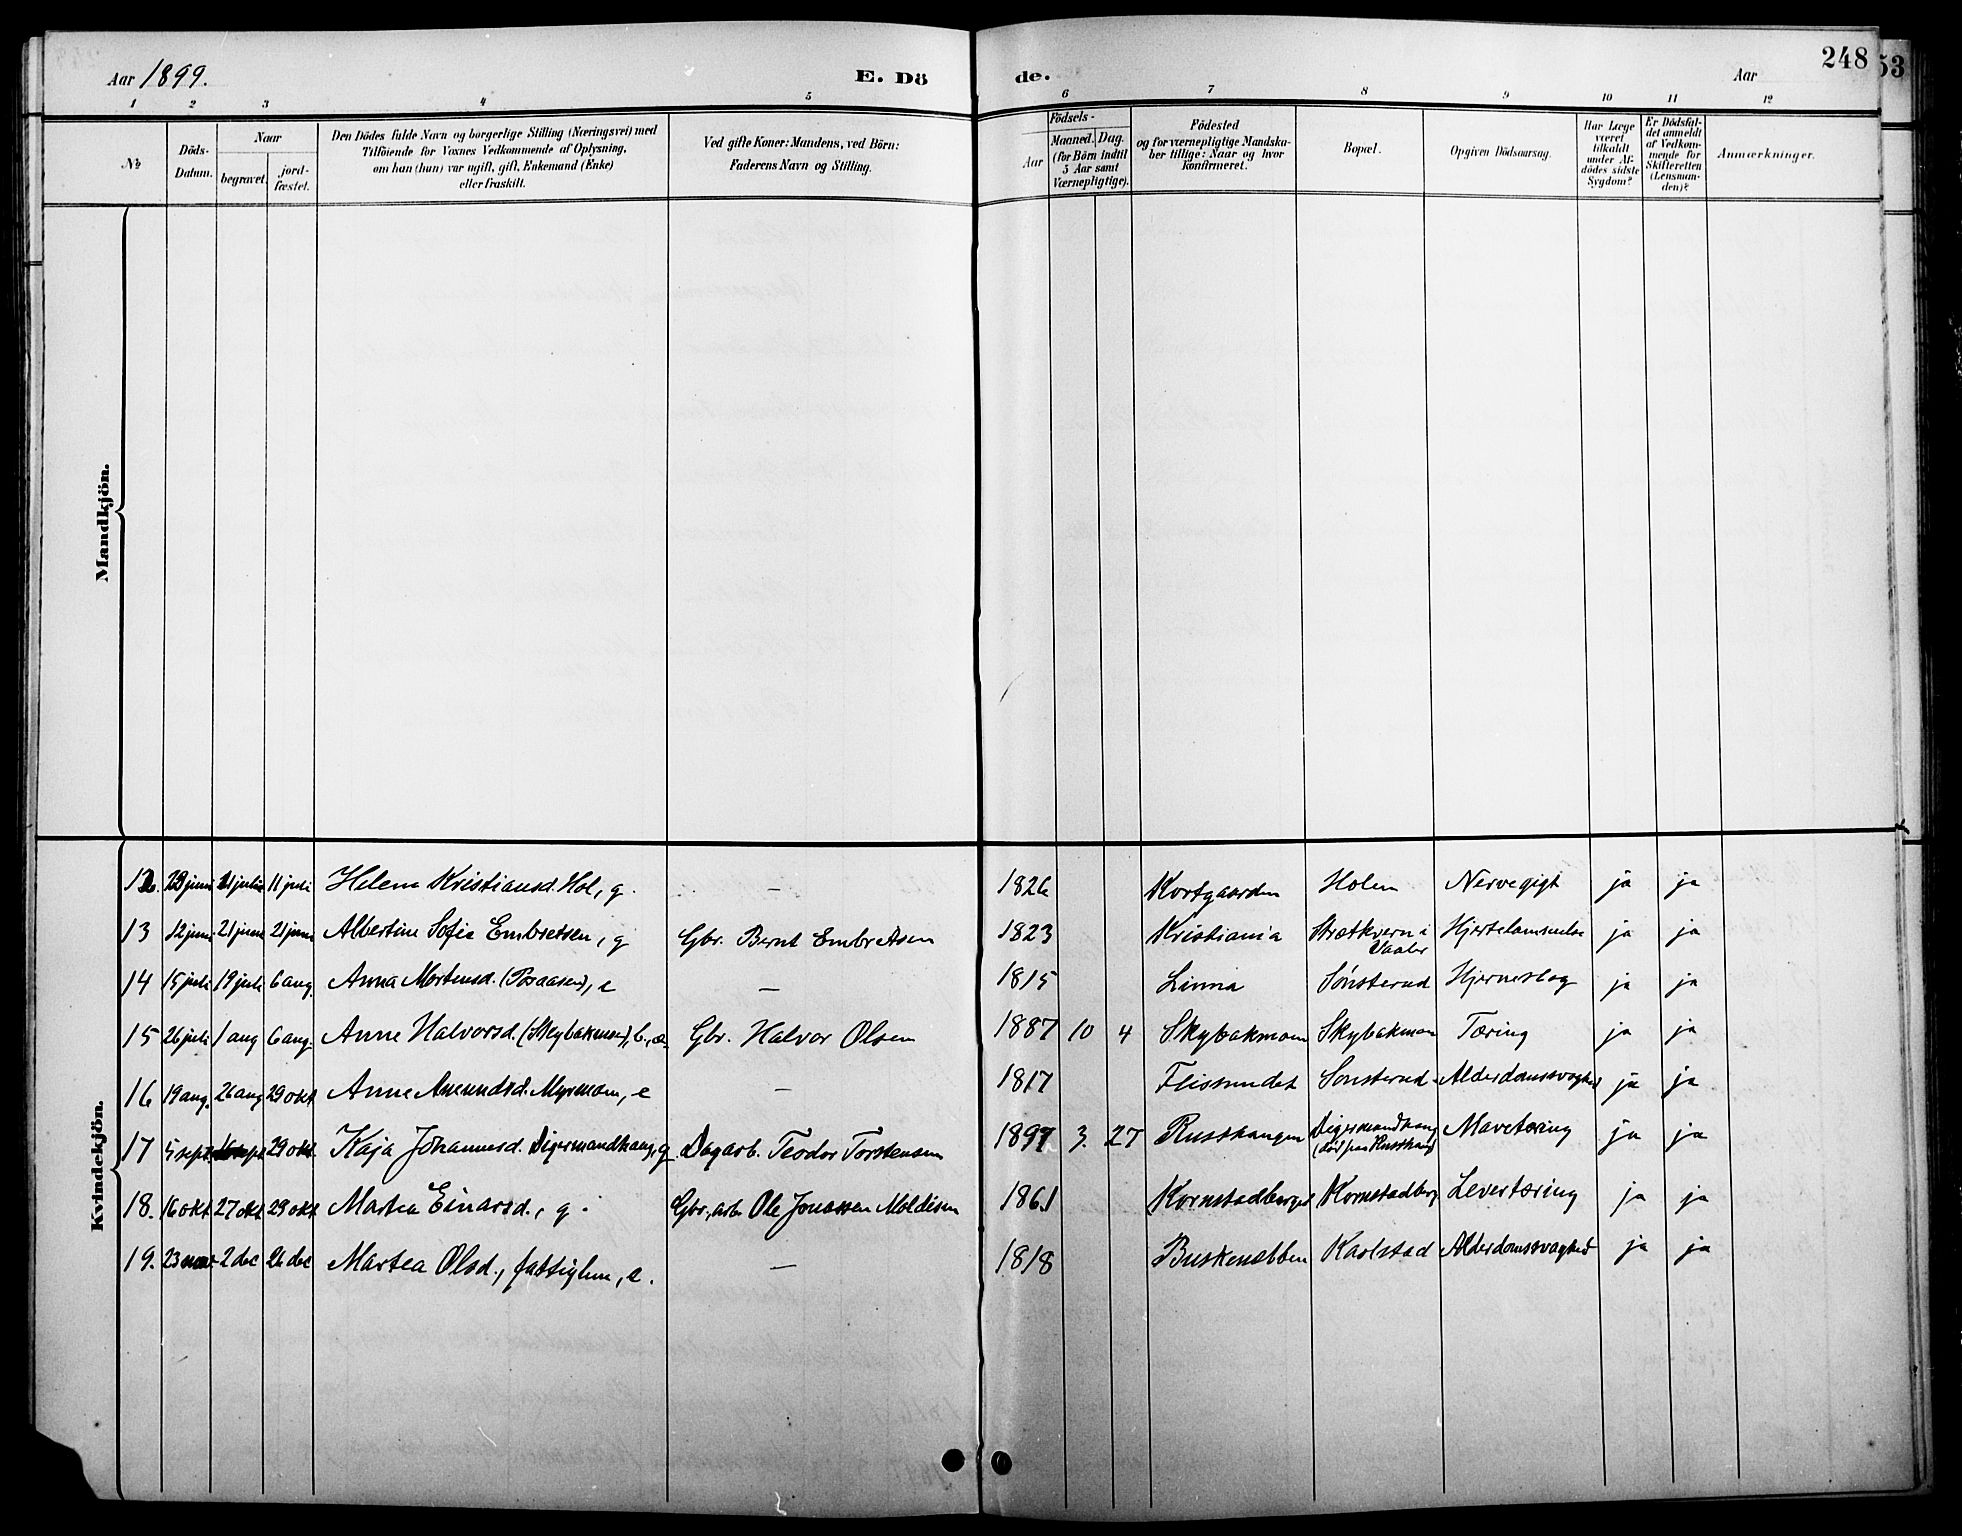 248
53
Aar 1899.
E. Dö
de.
Aar
1 2 3 4 5 6 7 8 9 10 11 12
№
Döds-Datum.
Naar
begravet.
jord-fæstet.
Den Dödes fulde Navn og borgerlige Stilling (Næringsvei) med
Tilföiende for Voxnes Vedkommende af Oplysning,
om han (hun) var ugift, gift, Enkemand (Enke)
eller fraskilt.
Ved gifte Koner: Mandens, ved Börn:
Faderens Navn og Stilling.
Födsels-
Aar
Maaned. Dag.
(for Börn indtil
5 Aar samt
Værnepligtige).
Födested
og for værnepligtige Mandska-
ber tillige: Naar og hvor
konfirmeret.
Bopæl.
Opgiven Dödsaarsag.
Har Læge
været
tilkaldt
under Af-
dödes sidste
Sygdom?
Er Dödsfal-
det anmeldt
af Vedkom-
mende for
Skifteretten
(Lensman-
den)?
Anmærkninger.
Mandkjön.
Kvindekjön.
12. juni juli 11 juli Helene Kristiansd. Hol, g. — 1826 Kortgaarden Holen Nervegigt ja ja
13 12 juni 21 juni 21 juni Albertine Sofie Embretsen, g Gbr. Bernt Embretsen 1823 Kristiania Strætkvern i Vaaler Hjertelammelse ja ja
14 15 juli 19 juli 6 aug. Anna Mortensd. (Baasen), e — 1815 Linna Sønsterud Hjerneslag ja ja
15 26 juli 1 aug 6 aug. Anne Halvorsd. (Skybakmoen), b., æ. Gbr. Halvor Olsen 1887 10 4 Skybakmoen Skybakmoen Tæring ja ja
16 19 aug. 26 aug 29 okt Anne Amundsd. Myrmoen, e — 1817 Flissundet Sønsterud Alderdomssvaghed ja ja
17 5 sept. sept 29 okt. Kaja Johannesd. Digermandhaug, g Dagarb. Teodor Torstensen 1897 3. 27 Russhaugen Digermandhaug (død paa Russhaug) Mavetæring ja ja
18. 16 okt 27 okt 29 okt Martea Einarsd., g. Gbr., arb. Ole Jonassen Moldusen 1861 Kornstadberget Kornstadberg Levertæring ja ja
19. 23 nov 2 dec 26 dec Martea Olsd., fattiglem, e. — 1818 Buskenebben Karlstad Alderdomssvaghed ja ja